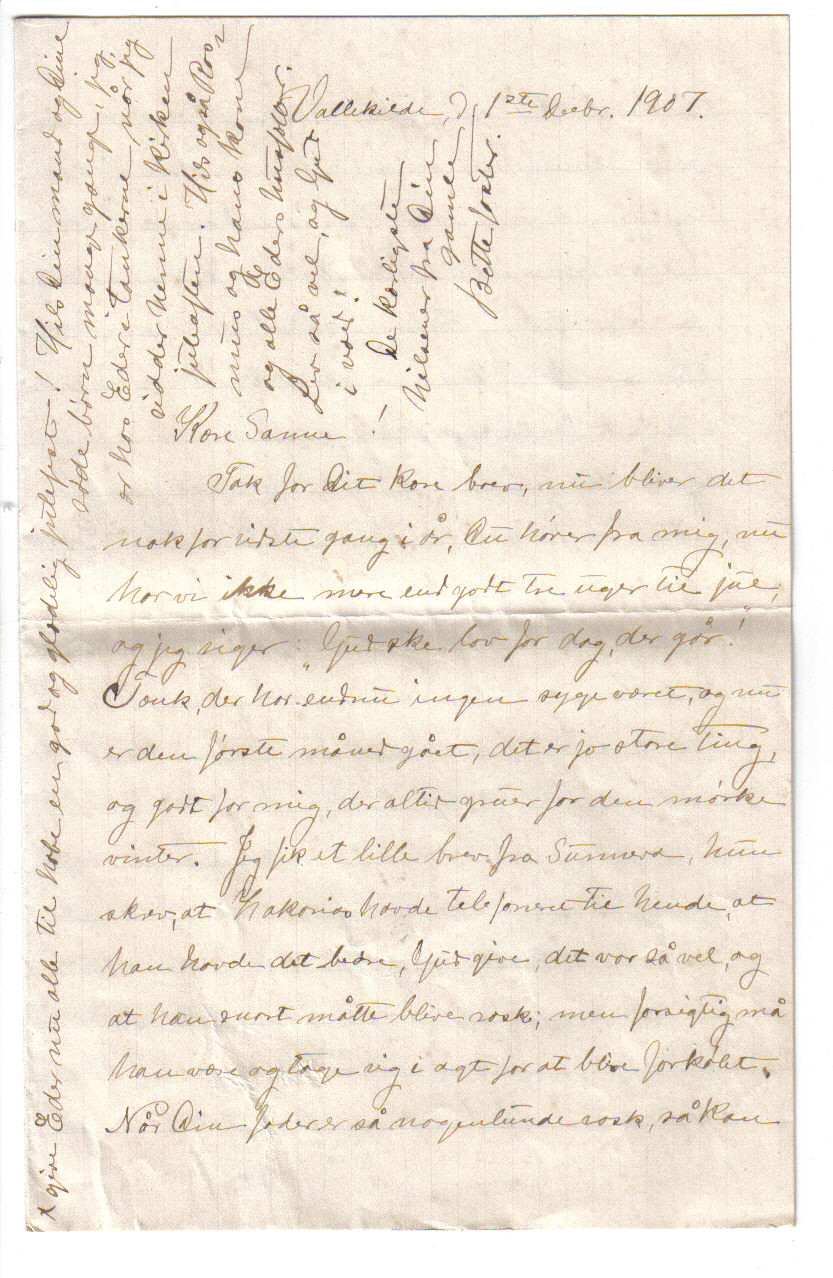 Vallekilde, d. 1ste Decbr. 1907.
Kære Sanne!
Tak for Dit kære brev, nu bliver det
nok for sidste gang i år, Du hører fra mig, nu
har vi ikke mere end godt tre uger til jul,
og jeg siger: "Gud ske lov for dag, der går!"
Tænk, der har endnu ingen syge været, og nu
er den første måned gået, det er jo store ting,
og godt for mig, der altid gruer for den mørke
vinter. Jeg fik et lille brev fra Sunneva, hun
skrev, at Zakarias havde telefoneret til hende, at
han havde det bedre, Gud give, det var så vel, og
at han snart måtte blive rask; men forsigtig må
han være og tage sig i agt for at blive forkølet.
Når Din fader er så nogenlunde rask, så kan
x give Eder nu alle til hobe en god og glædelig julefest! Hils Din mand og Dine
søde børn mange gange, jeg
er hos Eder i tankerne, når jeg
sidder henne i kirken
juleaften. Hils også Ras-
mus og hans kone
og alle Eders husfolk.
Lev så vel, og Gud
i vold!
De kærligste
hilsener fra Din
gamle
Bette faster.